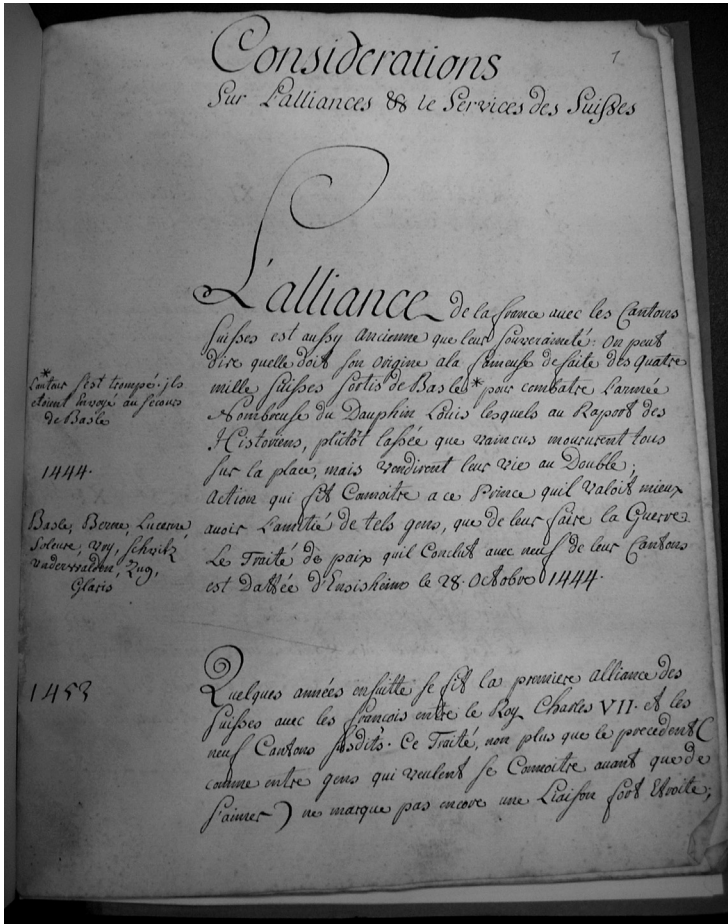 1
Considerations
Sur L'alliances & le Services des Suisses
L'alliance de la france avec les Cantons
Suisses est aussy ancienne que leur Souveraineté: on peut
dire quelle doit son origine a la fameuse defaite des quatre
mille Suisses sortis de Basle* pour combatre L'armée
Nombreuse du Dauphin Louis lesquels au Raport des
Historiens, plûtôt lassée que vaincus moururent tous
sur la place, mais vendirent leur vie au Double;
action qui fit Connoitre a ce Prince quil valoit mieux
avoir L'amitié de tels gens, que de leur faire la Guerre.
Le Traité de paix quil Conclut avec neuf de leur Cantons
est Dattée d'Ensisheim le 28. Octobre 1444.
*
L'auteur s'est trompé. jls
etoient Envoyé au secours
de Basle
1444.
Basle, Berne Lucerne
Soleure, Vry, Schwitz
Vndervvalden, Zug,
Glaris
1453
Quelques années ensuitte se fit la premiere alliance des
Suisses avec les francois entre le Roy Charles VII. et les
neuf Cantons susdits. Ce Traité, non plus que le precedent (
comme entre gens qui veulent se Connoitre avant que de
s'aimer ) ne marque pas encore une Liaison fort Etroite;